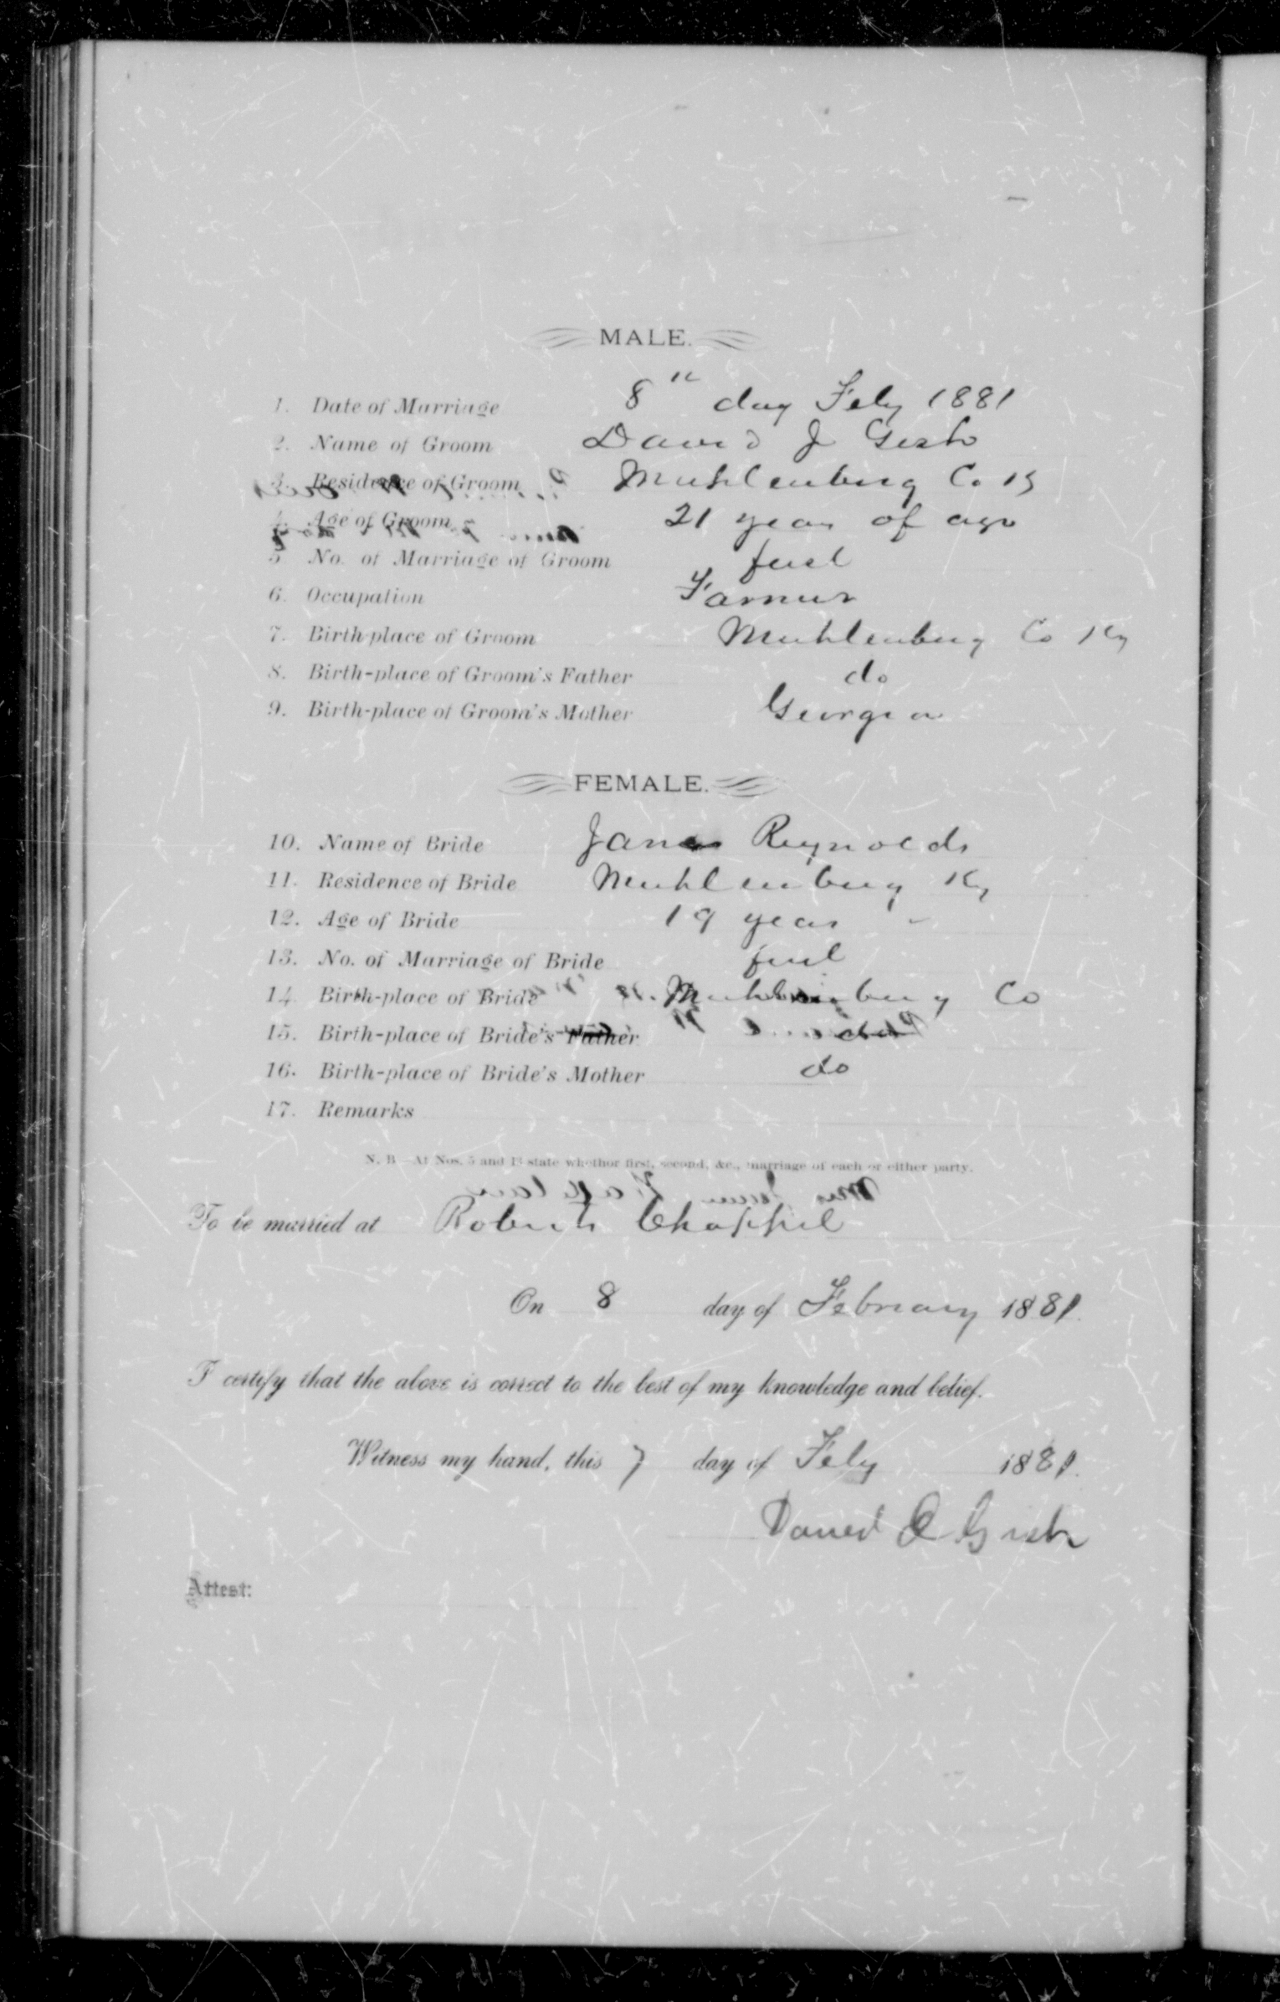 MALE.
1. Date of Marriage 8th day Feby 1881
2. Name of Groom David J Gish
3. Residence of Groom Muhlenberg Co Ky
4. Age of Groom 21 years of age
5 No. of Marriage of Groom first
6. Occupation Farmer
7. Birth-place of Groom Muhlenberg Co Ky
8. Birth-place of Groom's Father do
9. Birth-place of Groom's Mother Georgia
FEMALE.
10. Name of Bride Jane Reynolds
11. Residence of Bride Muhlenberg Ky
12. Age of Bride 19 years
13. No. of Marriage of Bride first
14 Birth-place of Bride Muhlenberg Co
15. Birth-place of Bride's Father
16. Birth-place of Bride's Mother do
17. Remarks
N. B—At Nos. 5 and 13 state whether first, second, &c., marriage of each or either party.
To be married at Roberts Chappel
On 8 day of February 1881.
I certify that the above is correct to the best of my knowledge and belief.
Witness my hand, this 7 day of Feby 1881.
Gish
Attest: